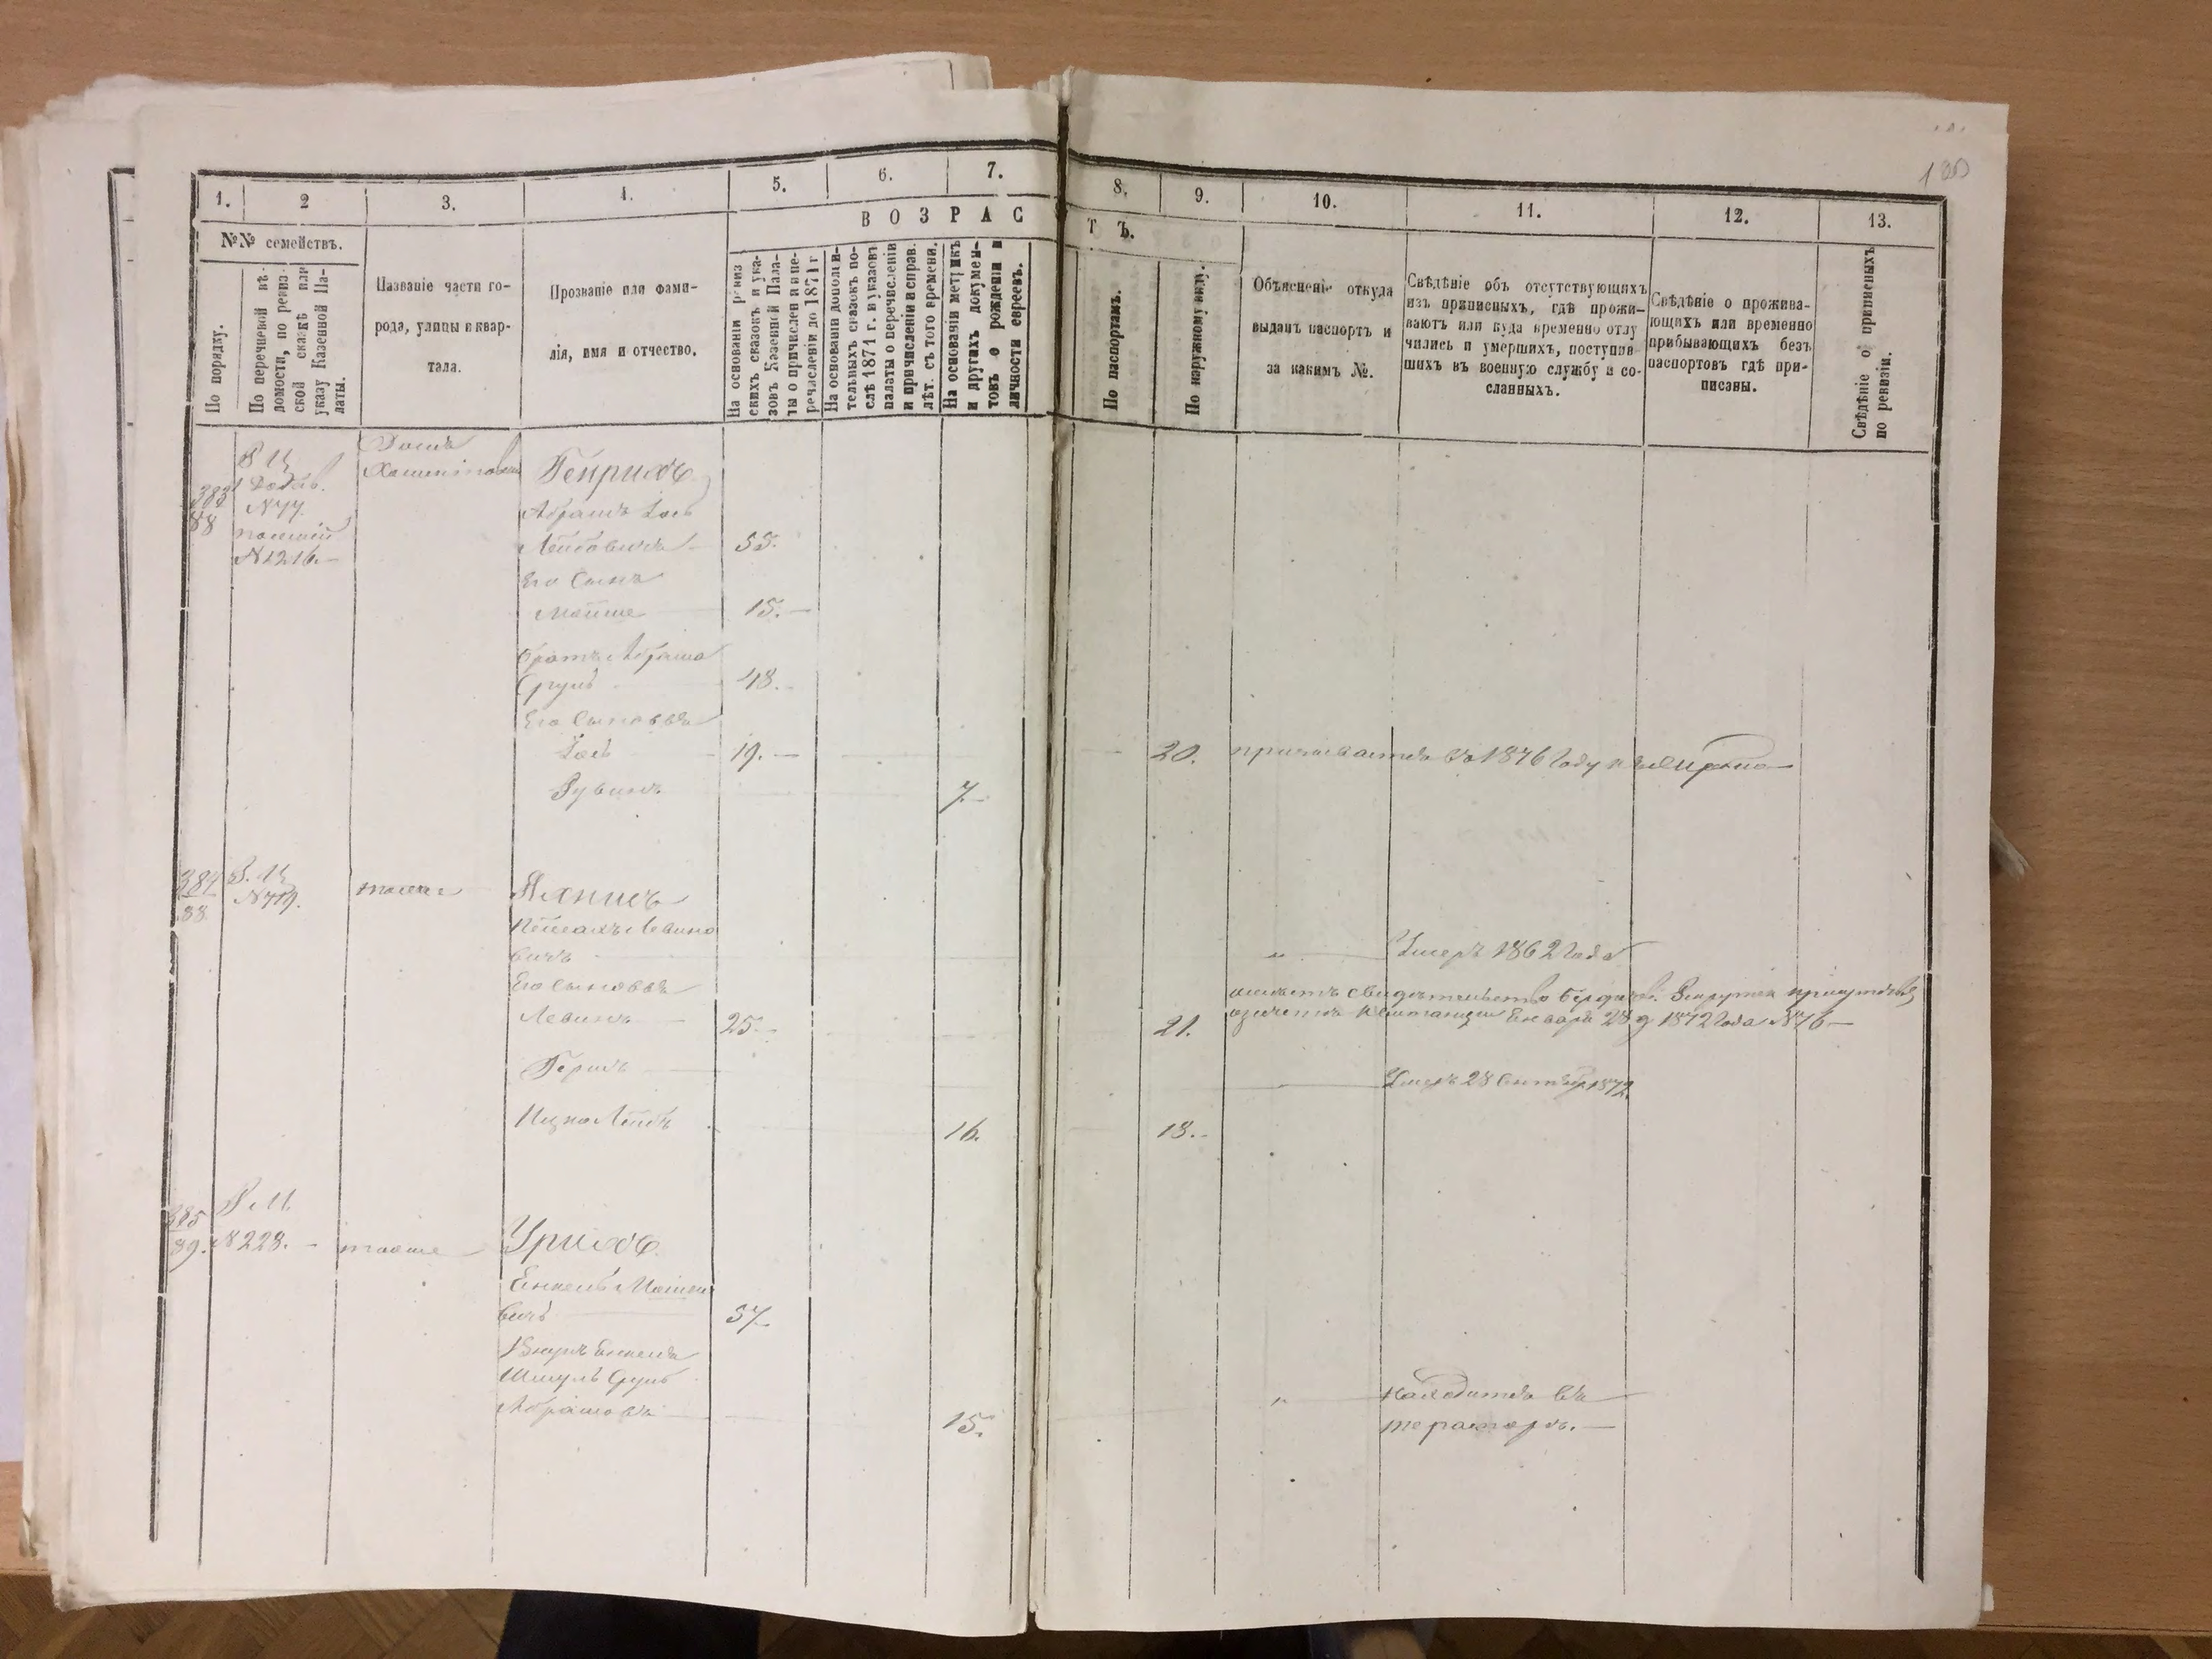 180
1.
2
3.
4.
5.
6.
7.
8.
9.
10.
11.
12.
13.
ВОЗРАС
ТЪ.
№№ семействъ.
По порядку.
По перечневой вѣ-
домости, по ревиз.
ской сказкѣ или
указу Казенной Па-
латы.
Названіе части го-
рода, улицы и квар-
тала.
Прозваніе или фами-
лія, имя и отчество.
На основаніи ревиз
скихъ сказокъ и ука-
зовъ Казенной Пала-
ты о причислен и пе-
речисленіи до 1871 г
На основаніи дополни-
тельныхъ сказокъ по-
слѣ 1871 г. и указовъ
палаты о перечисленіи
и причисленіи и справ.
лѣт. съ того времени.
На основаніи метрикъ
и другихъ докумен-
товъ о рожденіи и
личности евреевъ.
По паспортамъ.
По наружному виду.
Объясненіе откуда
выданъ паспортъ и
за какимъ №.
Свѣдѣніе объ отсутствующихъ
изъ приписныхъ, гдѣ прожи-
ваютъ или куда временно отлу
чились и умершихъ, поступив-
шихъ въ военную службу и со-
сланныхъ.
Свѣдѣніе о прожива-
ющихъ или временно
прибывающихъ безъ
паспортовъ гдѣ при-
писаны.
Свѣдѣніе о приписныхъ
по ревизіи.
383
88
Р М
Добав.
№ 77
№ 1216.—
Домъ
Генрихъ
Абрамъ Іось
Лейбовичъ — 55.
Его Сынъ
Мойше — 15.—
братъ Абрама
Сруль — 48.—
Его Сыновья
Іось — 19.— 20. призывается въ 1876 году къ
Рувинъ 7.—
384
88
Р. М
№ 719.
тоже
Яхнисъ
Пейсахъ Левино
вичъ — „ — Умеръ 1862 года
Его сыновья
Левинъ — 25.— 21. имѣетъ свидѣтельство Бердич. Рекрутск присутствія
Января 28 д 1872 года № 76—
Гершъ — Умеръ 28 Сентяб 1872.
Ицко Лейбъ 16. 18.—
385
89.
Р М.
№ 228. —
тоже —
Урихъ
Енкель Мошко
вичъ — 57.—
Внукъ Енкеля
Шмуль Сруль
Абрамовъ — 15. „ — находится въ